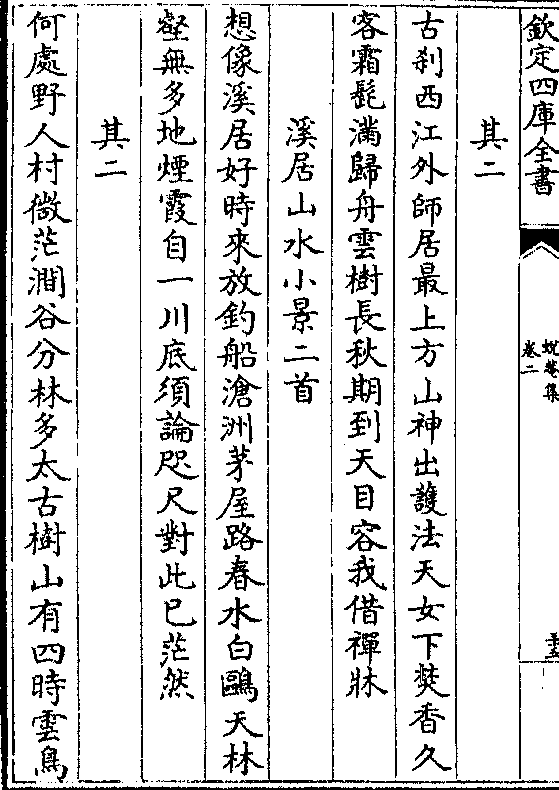 欽定四庫全書
蛻菴集
卷二
其二
古刹西江外師居最上方山神出護法天女下焚香久
客霜髭滿歸舟雲樹長秋期到天目容我借禪牀
溪居山水小景二首
想像溪居好時來放釣船滄洲茅屋路春水白鷗天林
壑無多地煙霞自一川底須論咫尺對此已茫然
其二
何處野人村微茫澗谷分林多太古樹山有四時雲鳥